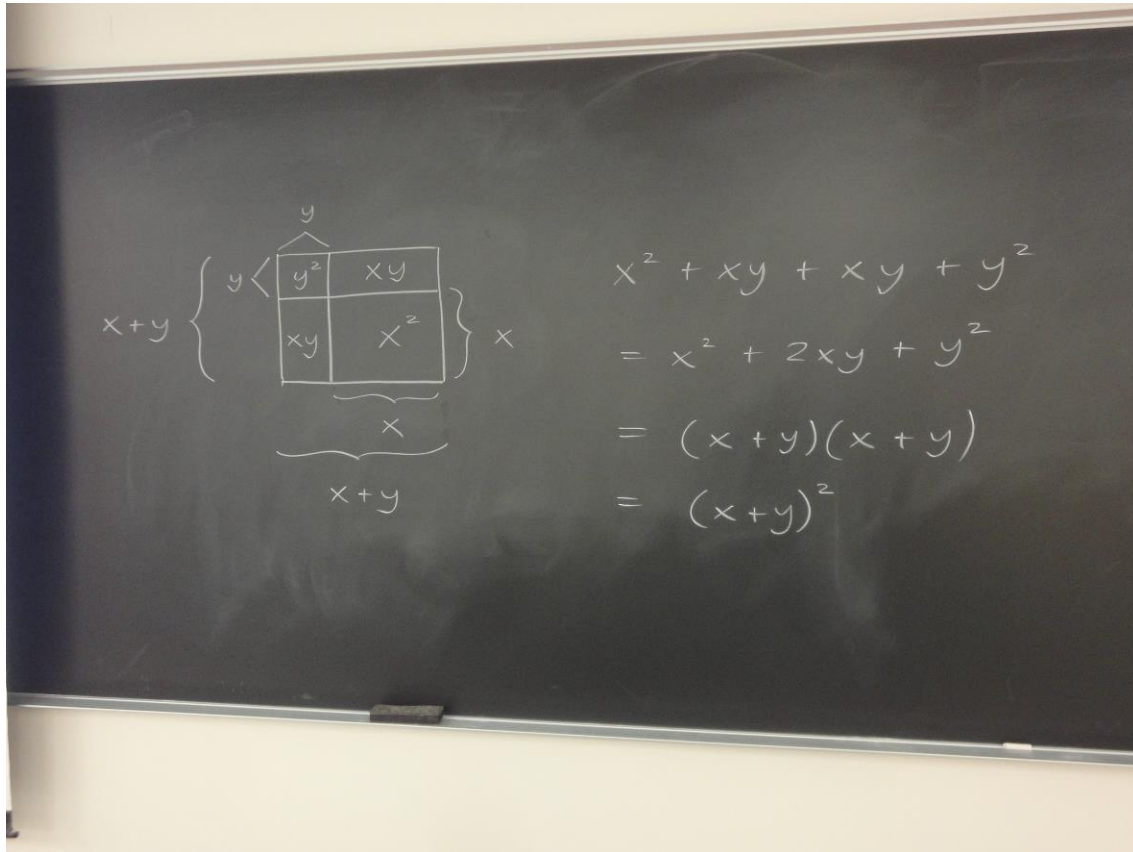 y
y y² xy
x+y xy x² x
x
x+y
x² + xy + xy + y²
= x² + 2xy + y²
= (x + y)(x + y)
= (x+y)²